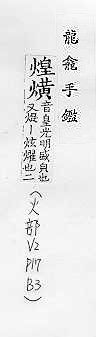 龍龕手鑑
煌熿
音皇光明盛皃也
又煜丨炫燿也二
(火部 V2 P17 B3)